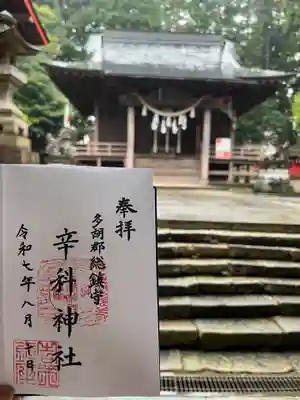 奉拝
多胡郡総鎮守
辛科神社
令和七年八月十日